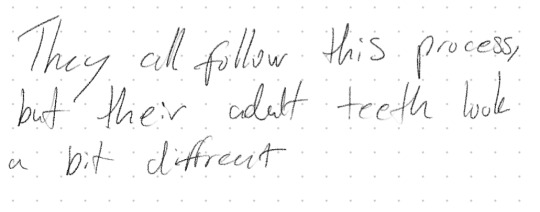 They all follow this process,
but their adult teeth look
a bit diffrent